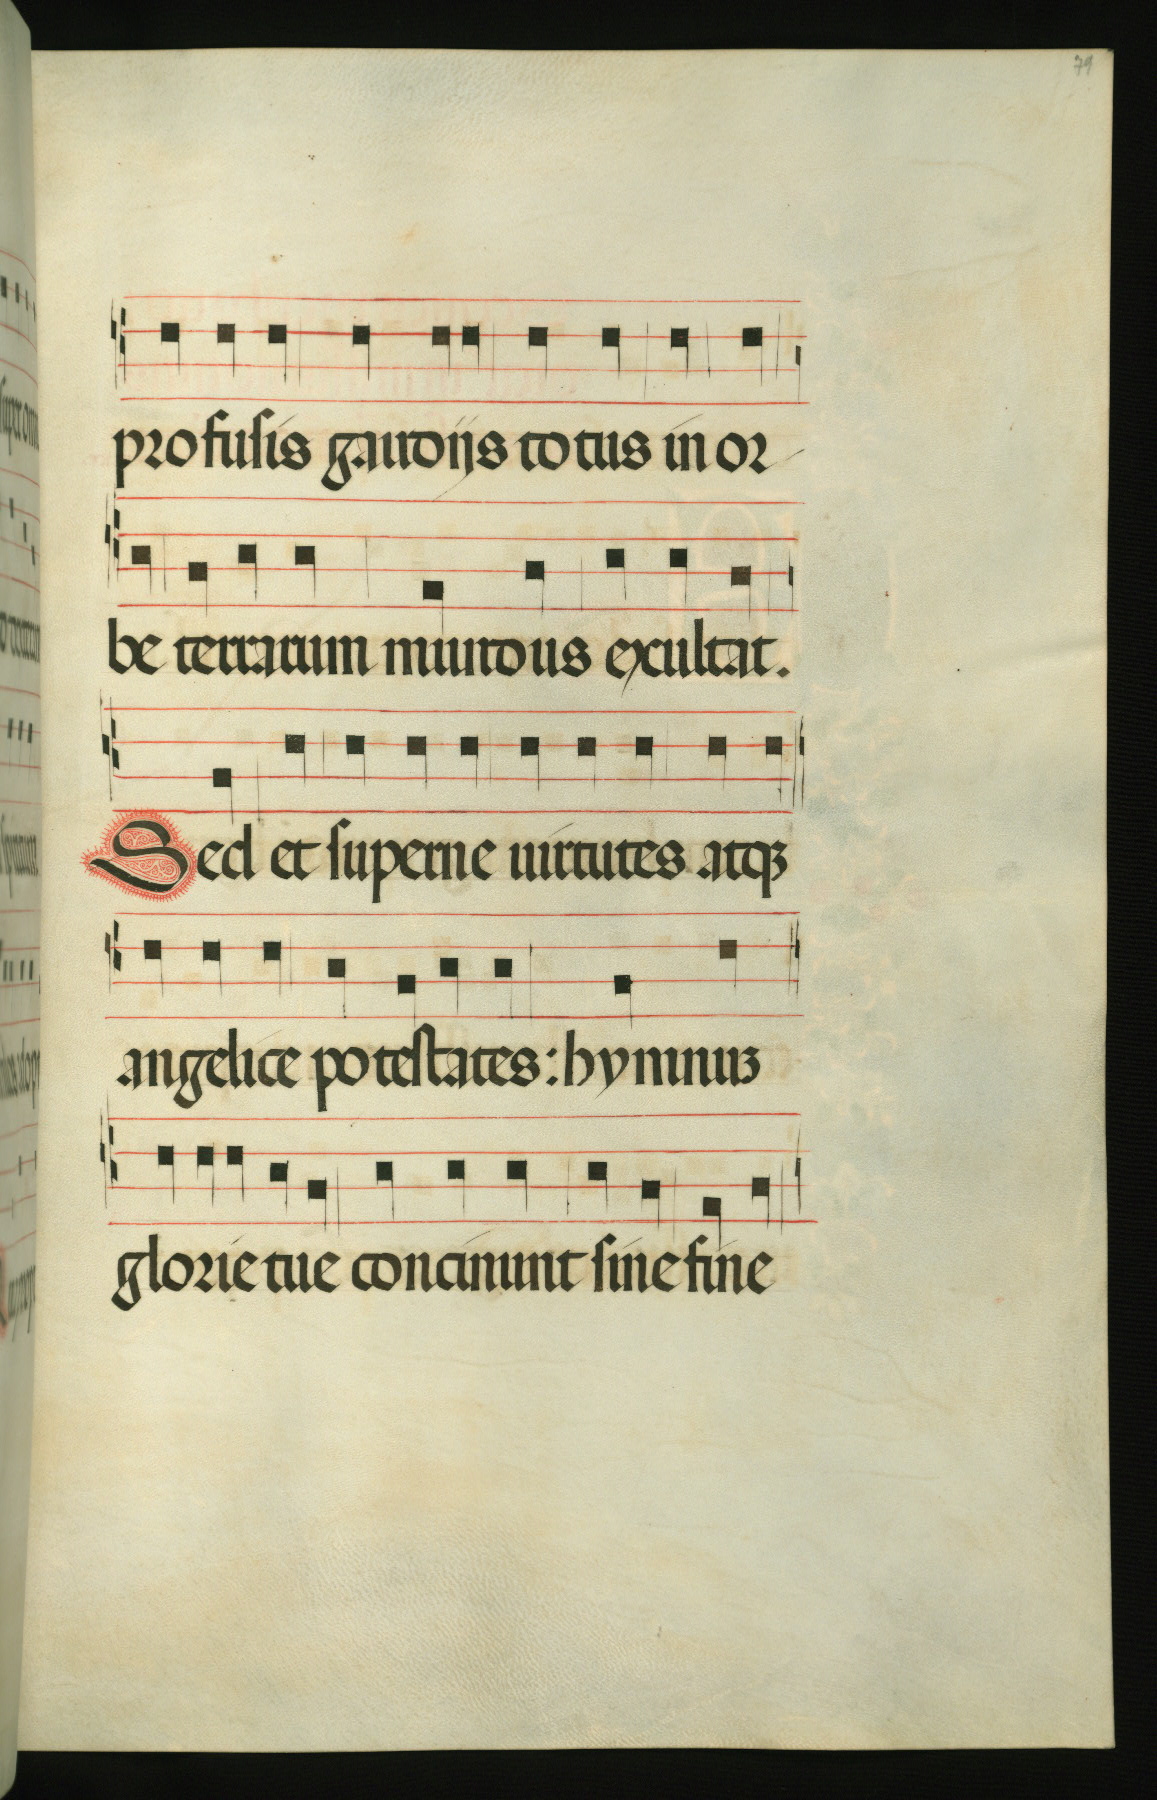 79
profusis gaudijs totus in or
be terrarum mundus exultat.
Sed et superne uirtutes atqȝ
angelice potestates: hymnuȝ
glorie tue concinunt sine fine